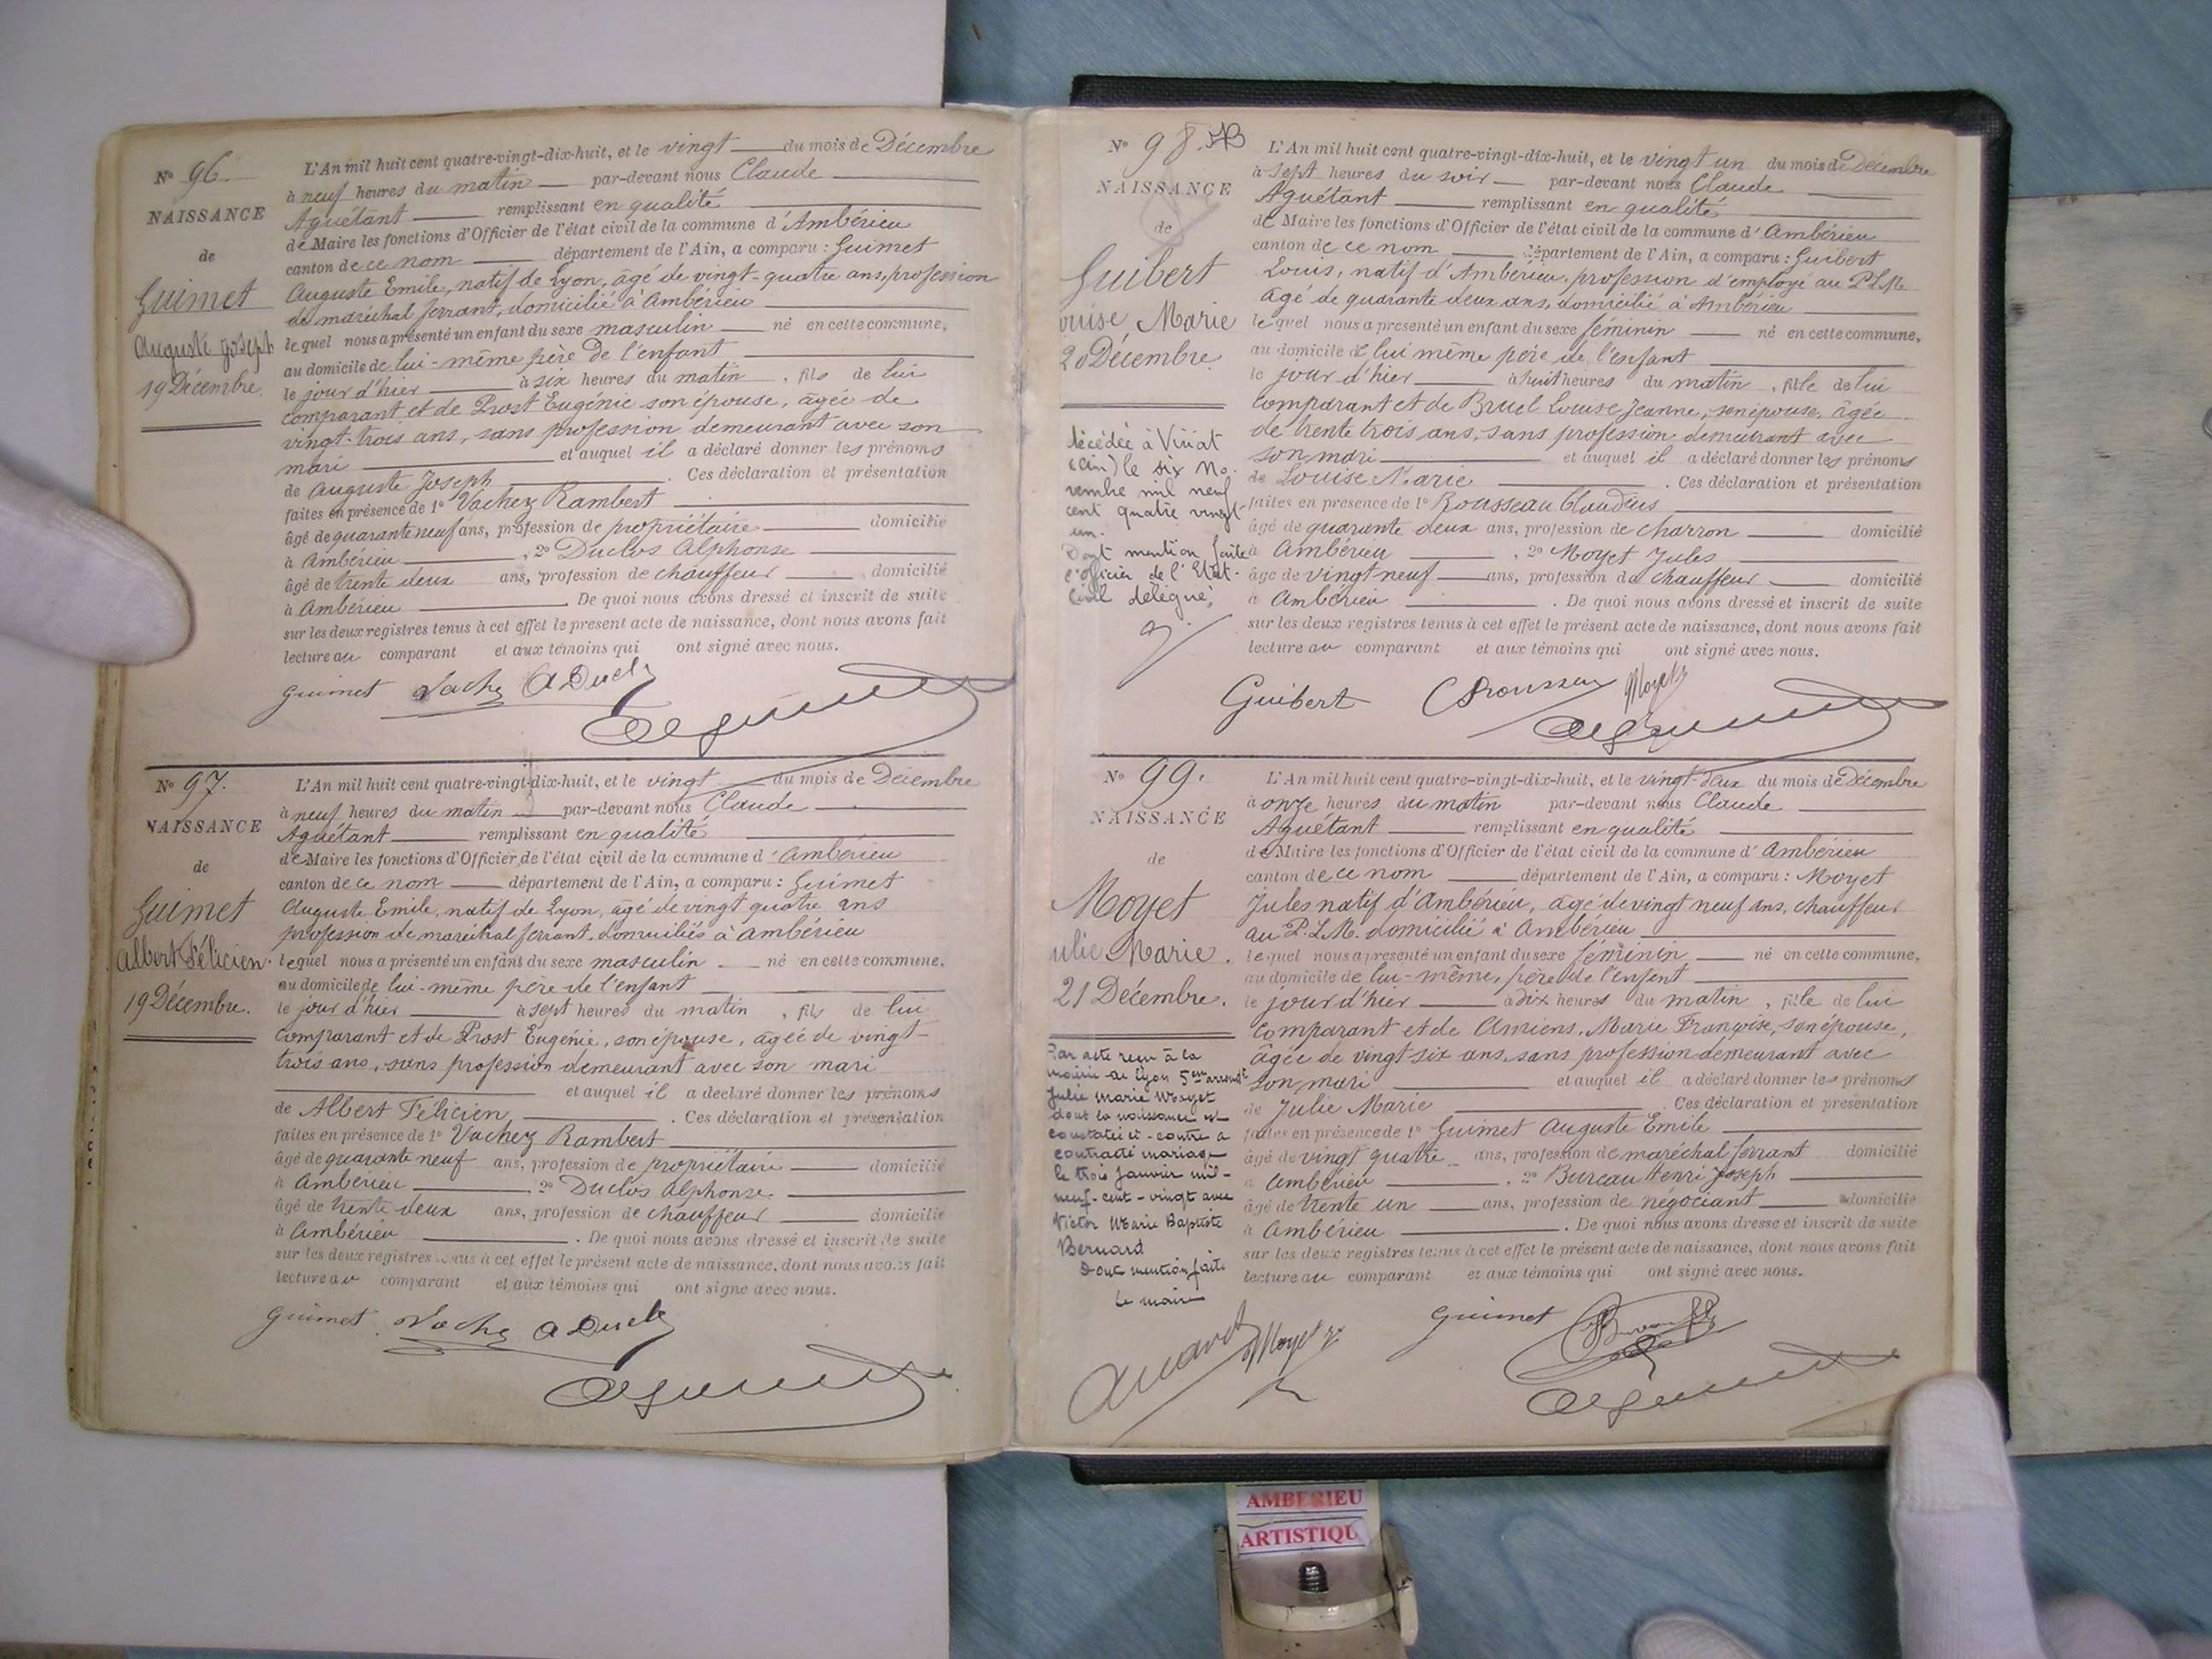 N° 96.
NAISSANCE
de
Guimet
Auguste Joseph
19 Décembre.
L'An mil huit cent quatre-vingt-dix-huit, et le vingt du mois de Décembre
à neuf heures du matin par-devant nous Claude
Aguétant remplissant en qualité
de Maire les fonctions d'Officier de l'état civil de la commune d'Ambérieu
canton de ce nom département de l'Ain, a comparu : Guimet
Auguste Emile, natif de Lyon, âgé de vingt-quatre ans, profession
de maréchal ferrant, domicilié à Ambérieu
lequel nous a présenté un enfant du sexe masculin né en cette commune,
au domicile de lui-même père de l'enfant
le jour d'hier à six heures du matin, fils de lui
comparant et de Prost Eugénie son épouse, âgée de
vingt-trois ans, sans profession demeurant avec son
mari et auquel il a déclaré donner les prénoms
de Auguste Joseph. Ces déclaration et présentation
faites en présence de 1° Vachez Rambert
âgé de quarante neuf ans, profession de propriétaire domicilié
à Ambérieu, 2° Duclos Alphonse
âgé de trente deux ans, profession de chauffeur domicilié
à Ambérieu. De quoi nous avons dressé et inscrit de suite
sur les deux registres tenus à cet effet le présent acte de naissance, dont nous avons fait
lecture au comparant et aux témoins qui ont signé avec nous.
Guimet Vachez A Duclos
N° 97.
NAISSANCE
de
Guimet
Albert Félicien.
19 Décembre.
L'An mil huit cent quatre-vingt-dix-huit, et le vingt du mois de Décembre
à neuf heures du matin par-devant nous Claude
Aguétant remplissant en qualité
de Maire les fonctions d'Officier de l'état civil de la commune d'Ambérieu
canton de ce nom département de l'Ain, a comparu : Guimet
Auguste Emile, natif de Lyon, âgé de vingt quatre ans
profession de maréchal ferrant, domiciliés à Ambérieu
lequel nous a présenté un enfant du sexe masculin né en cette commune,
au domicile de lui-même père de l'enfant
le jour d'hier à sept heures du matin, fils de lui
comparant et de Prost Eugénie, son épouse, âgée de vingt-
trois ans, sans profession demeurant avec son mari
et auquel il a déclaré donner les prénoms
de Albert Félicien. Ces déclaration et présentation
faites en présence de 1° Vachez Rambert
âgé de quarante neuf ans, profession de propriétaire domicilié
à Ambérieu 2° Duclos Alphonse
âgé de trente deux ans, profession de chauffeur domicilié
à Ambérieu. De quoi nous avons dressé et inscrit de suite
sur les deux registres tenus à cet effet le présent acte de naissance, dont nous avons fait
lecture au comparant et aux témoins qui ont signé avec nous.
Guimet Vachez A Duclos
N° 98.
NAISSANCE
de
Guibert
ouise Marie
20 Décembre.
décédée à Viriat
(Ain) le six No-
vembre mil neuf
cent quatre vingt-
un.
Dont mention faite
l'officier de l'Etat-
Civil délégué,
L'An mil huit cent quatre-vingt-dix-huit, et le vingt un du mois de Décembre
à sept heures du soir par-devant nous Claude
Aguétant remplissant en qualité
de Maire les fonctions d'Officier de l'état civil de la commune d'Ambérieu
canton de ce nom département de l'Ain, a comparu : Guibert
Louis, natif d'Ambérieu, profession d'employé au P.L.M.
âgé de quarante deux ans, domicilié à Ambérieu
lequel nous a présenté un enfant du sexe féminin né en cette commune,
au domicile de lui même père de l'enfant
le jour d'hier à huit heures du matin, fille de lui
comparant et de Bruel Louise Jeanne, son épouse, âgée
de trente trois ans, sans profession demeurant avec
son mari et auquel il a déclaré donner les prénoms
de Louise Marie. Ces déclaration et présentation
faites en présence de 1° Rousseau Claudius
âgé de quarante deux ans, profession de charron domicilié
à Ambérieu, 2° Moyet Jules
âgé de vingt-neuf ans, profession de chauffeur domicilié
à Ambérieu. De quoi nous avons dressé et inscrit de suite
sur les deux registres tenus à cet effet le présent acte de naissance, dont nous avons fait
lecture au comparant et aux témoins qui ont signé avec nous.
Guibert C Rousseau Moyet
N° 99.
NAISSANCE
de
Moyet
ulie Marie.
21 Décembre.
Par acte reçu à la
mairie de Lyon 5em arrondt
Julie Marie Moyet
dont la naissance est
constatée ci-contre a
contracté mariage
le trois janvier mil-
neuf-cent-vingt avec
Victor Marie Baptiste
Bernard
Dont mention faite
Le maire
L'An mil huit cent quatre-vingt-dix-huit, et le vingt-deux du mois de Décembre
à onze heures du matin par-devant nous Claude
Aguétant remplissant en qualité
de Maire les fonctions d'Officier de l'état civil de la commune d'Ambérieu
canton de ce nom département de l'Ain, a comparu : Moyet
Jules natif d'Ambérieu, âgé de vingt neuf ans, chauffeur
au P.L.M. domicilié à Ambérieu
lequel nous a présenté un enfant du sexe féminin né en cette commune,
au domicile de lui-même, père de l'enfant
le jour d'hier à dix heures du matin, fille de lui
comparant et de Amiens, Marie Françoise, son épouse,
âgée de vingt-six ans, sans profession demeurant avec
son mari et auquel il a déclaré donner les prénoms
de Julie Marie. Ces déclaration et présentation
faites en présence de 1° Guimet Auguste Emile
âgé de vingt quatre ans, profession de maréchal ferrant domicilié
à Ambérieu, 2° Bureau Henri Joseph
âgé de trente un ans, profession de négociant domicilié
à Ambérieu. De quoi nous avons dressé et inscrit de suite
sur les deux registres tenus à cet effet le présent acte de naissance, dont nous avons fait
lecture au comparant et aux témoins qui ont signé avec nous.
Moyet Guimet
AMBERIEU
ARTISTIQU